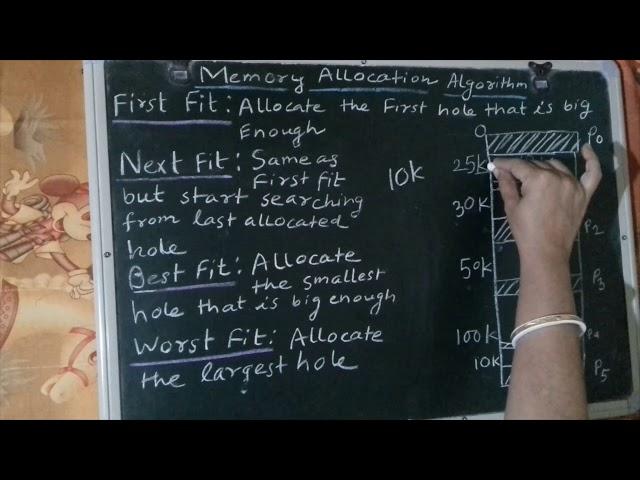 Memory Allocation Algorithm
First Fit: Allocate the First hole that is big
Enough
Next Fit: Same as
First fit
but start searching
from last allocated
hole
Best Fit: Allocate
the smallest
hole that is big enough
Worst Fit: Allocate
the largest hole
10K
0
P0
25K
30K
P2
50K
P3
100K
P4
10K
P5